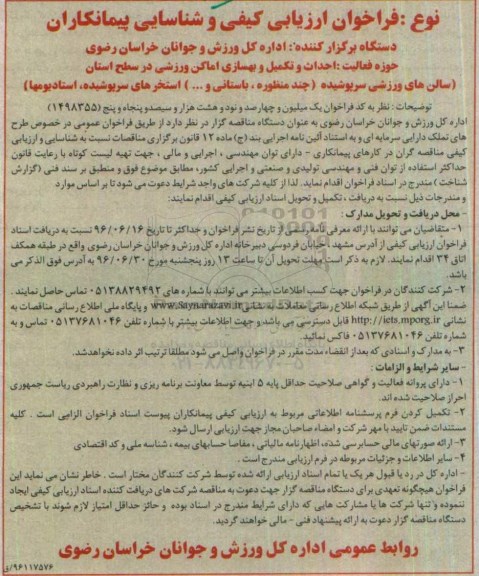 نوع :فراخوان ارزیابی کیفی و شناسایی پیمانکاران
دستگاه برگزار کننده: اداره کل ورزش و جوانان خراسان رضوی
حوزه فعالیت :احداث و تکمیل و بهسازی اماکن ورزشی در سطح استان
(سالن های ورزشی سرپوشیده (چند منظوره ، باستانی و ... ) استخر های سرپوشیده، استادیومها)
توضیحات : نظر به کد فراخوان یک میلیون و چهارصد و نود و هشت هزار و سیصد و پنجاه و پنج (۱۴۹۸۳۵۵)
اداره کل ورزش و جوانان خراسان رضوی به عنوان دستگاه مناقصه گزار در نظر دارد از طریق فراخوان عمومی در خصوص طرح
های تملک دارایی سرمایه ای و به استناد آئین نامه اجرایی بند (ج) ماده ۱۲ قانون برگزاری مناقصات نسبت به شناسایی و ارزیابی
کیفی مناقصه گران در کارهای پیمانکاری - دارای توان مهندسی ، اجرایی و مالی ، جهت تهیه لیست کوتاه با رعایت قانون
حداکثر استفاده از توان فنی و مهندسی تولیدی و صنعتی و اجرایی کشور، مطابق موضوع فوق و منطبق بر سند فنی (گزارش
شناخت ) مندرج در اسناد فراخوان اقدام نماید. لذا از کلیه شرکت های واجد شرایط دعوت می شود تا بر اساس موارد
و مندرجات ذیل نسبت به دریافت ، تکمیل و تحویل اسناد ارزیابی کیفی اقدام نمایند:
- محل دریافت و تحویل مدارک :
۱- متقاضیان می توانند با ارائه معرفی نامه رسمی از تاریخ نشر فراخوان و حداکثر تا تاریخ ۹۶/۰۶/۱۶ نسبت به دریافت اسناد
فراخوان ارزیابی کیفی از آدرس مشهد ، خیابان فردوسی دبیرخانه اداره کل ورزش و جوانان خراسان رضوی واقع در طبقه همکف
اتاق ۳۴ اقدام نمایند. لازم به ذکر است مهلت تحویل آن تا ساعت ۱۳ روز پنجشنبه مورخ ۹۶/۰۶/۳۰ به آدرس فوق الذکر می
باشد.
۲- شرکت کنندگان در فراخوان جهت کسب اطلاعات بیشتر می توانند با شماره های ۰۵۱۳۸۸۲۹۴۹۳ تماس حاصل نمایند .
ضمنا این آگهی از طریق شبکه اطلاع رسانی معاملات به نشانی www.Saynarazavi.ir و پایگاه ملی اطلاع رسانی مناقصات به
نشانی http://iets.mporg.ir قابل دسترسی می باشد و جهت اطلاعات بیشتر با شماره تلفن ۰۵۱۳۷۶۸۱۰۴۶ تماس و به
شماره تلفن ۰۵۱۳۷۶۸۱۰۴۶ فاکس نمائید.
۳- به مدارک و اسنادی که بعد از انقضاء مدت مقرر در فراخوان واصل می شود مطلقا ترتیب اثر داده نخواهد شد.
- سایر شرایط و الزامات :
۱- دارای پروانه فعالیت و گواهی صلاحیت حداقل پایه ۵ ابنیه توسط معاونت برنامه ریزی و نظارت راهبردی ریاست جمهوری
احراز صلاحیت شده اند.
۲- تکمیل کردن فرم پرسشنامه اطلاعاتی مربوط به ارزیابی کیفی پیمانکاران پیوست اسناد فراخوان الزامی است . کلیه
مستندات ضمن تایید با مهر شرکت و امضاء صاحبان مجاز جهت ارزیابی ارسال شود.
۳- ارائه صورتهای مالی حسابرسی شده، اظهارنامه مالیاتی ، مفاصا حسابهای بیمه ، شناسه ملی و کد اقتصادی
۴- سایر اطلاعات و جزئیات مربوطه در فرم ارزیابی مندرج است .
- اداره کل در رد یا قبول هر یک یا تمام اسناد ارزیابی ارائه شده توسط شرکت کنندگان مختار است . خاطر نشان می نماید این
فراخوان هیچگونه تعهدی برای دستگاه مناقصه گزار جهت دعوت به مناقصه شرکت های دریافت کننده اسناد ارزیابی کیفی ایجاد
ننموده و تنها شرکت ها یا مشارکت هایی که دارای شرایط مندرج در اسناد بوده و حائز حداقل امتیاز لازم شوند با تشخیص
دستگاه مناقصه گزار دعوت به ارائه پیشنهاد فنی - مالی خواهند گردید.
روابط عمومی اداره کل ورزش و جوانان خراسان رضوی
۹۶۱۱۷۵۷۶/ق